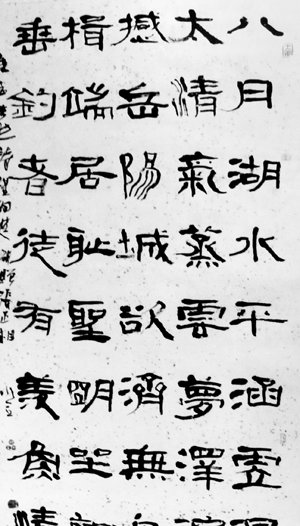 八月湖水平涵虛
太清氣蒸雲夢澤
撼岳陽城欲濟無
楫端居耻聖明坐
垂釣者徒有羨魚情